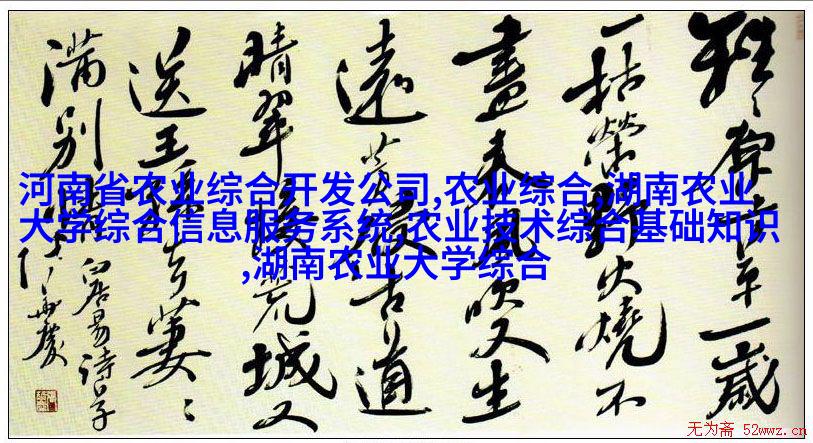 河南省农业综合开发公司,农业综合,湖南农业
大学综合信息服务系统,农业技术综合基础知识
,湖南农业大学综合
離〻原上草一歲
一枯榮野火燒不
盡春風吹又生
遠芳侵古道
晴翠接荒城又
送王孫去萋〻
满别情
白居易诗
无为斋 52wwz.cn